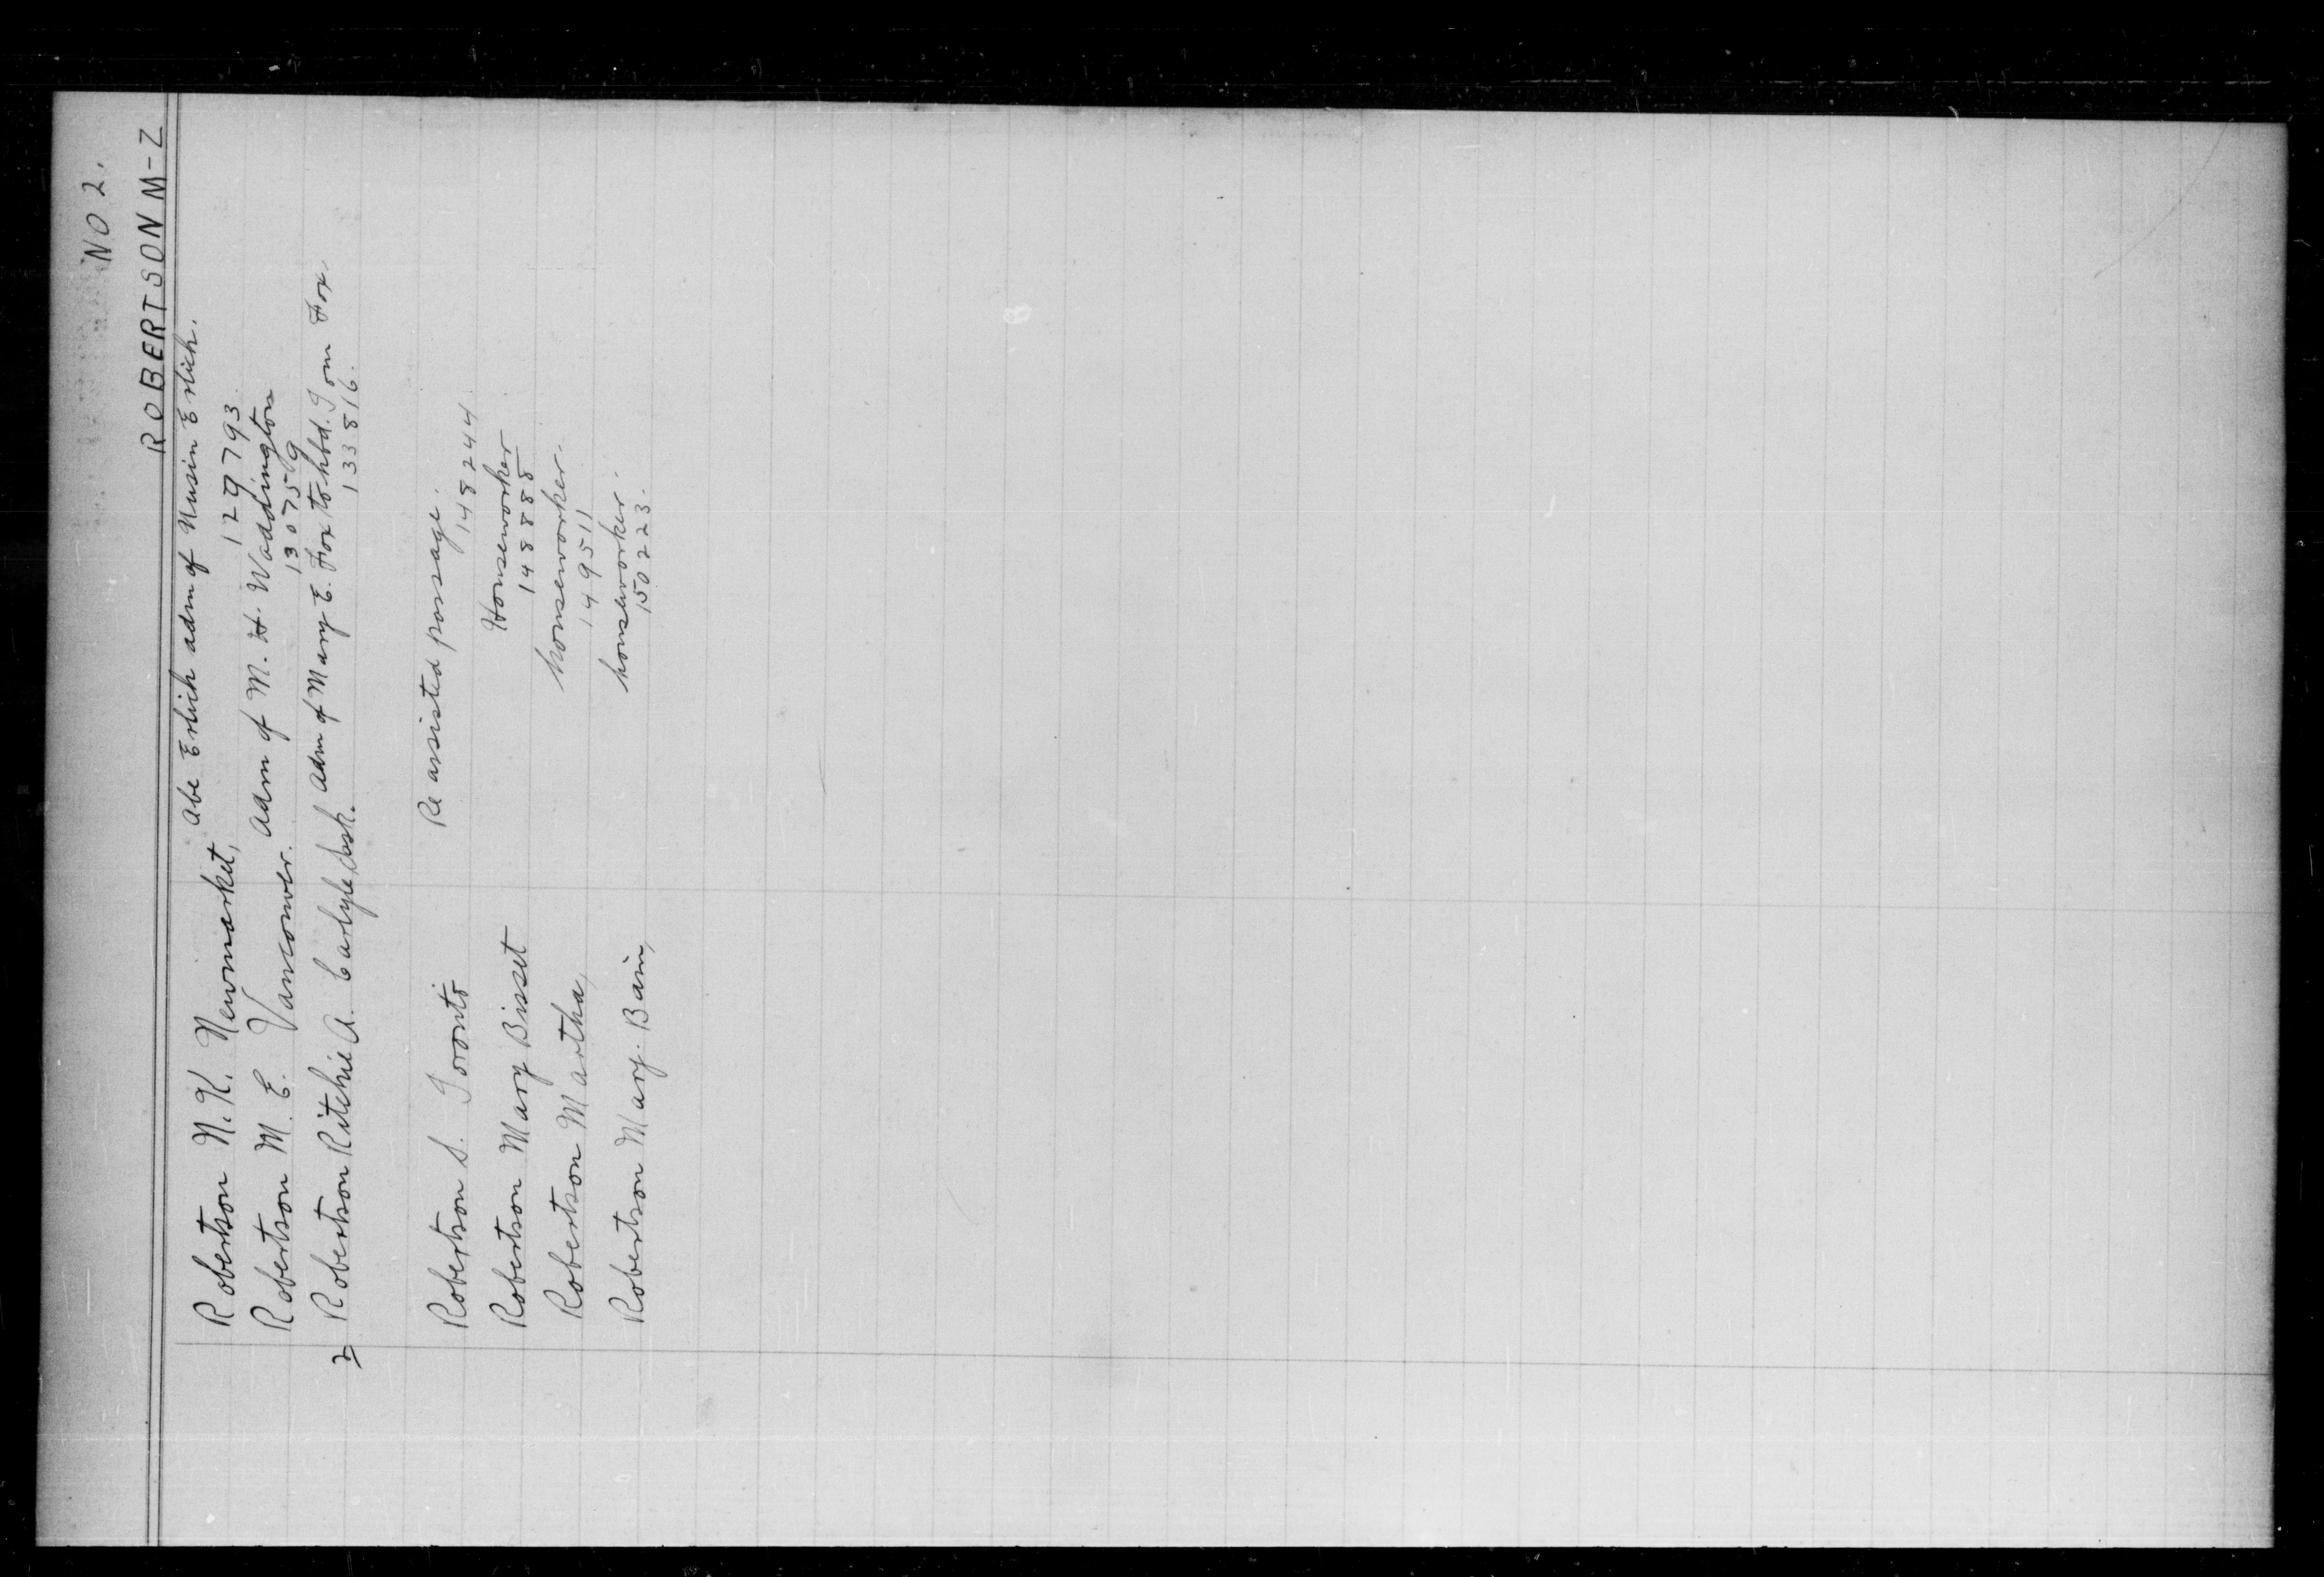 NO 2.
ROBERTSON M-Z
Robertson N. K. Newmarket, Abe Erlich adm of Nusin Erlich.
129793
Robertson M. E. Vancouver. Adm of M. H. Waddington
130759
2 Robertson Ritchie A. Carlyle, Sask. Adm of Mary E. Fox to hbd. Tom Fox.
133816.
Robertson S. Toronto Re assisted passage.
148244
Robertson Mary Bisset Houseworker
148888
Robertson Martha, houseworker.
149511
Robertson Mary. Bain, houseworker.
150223.